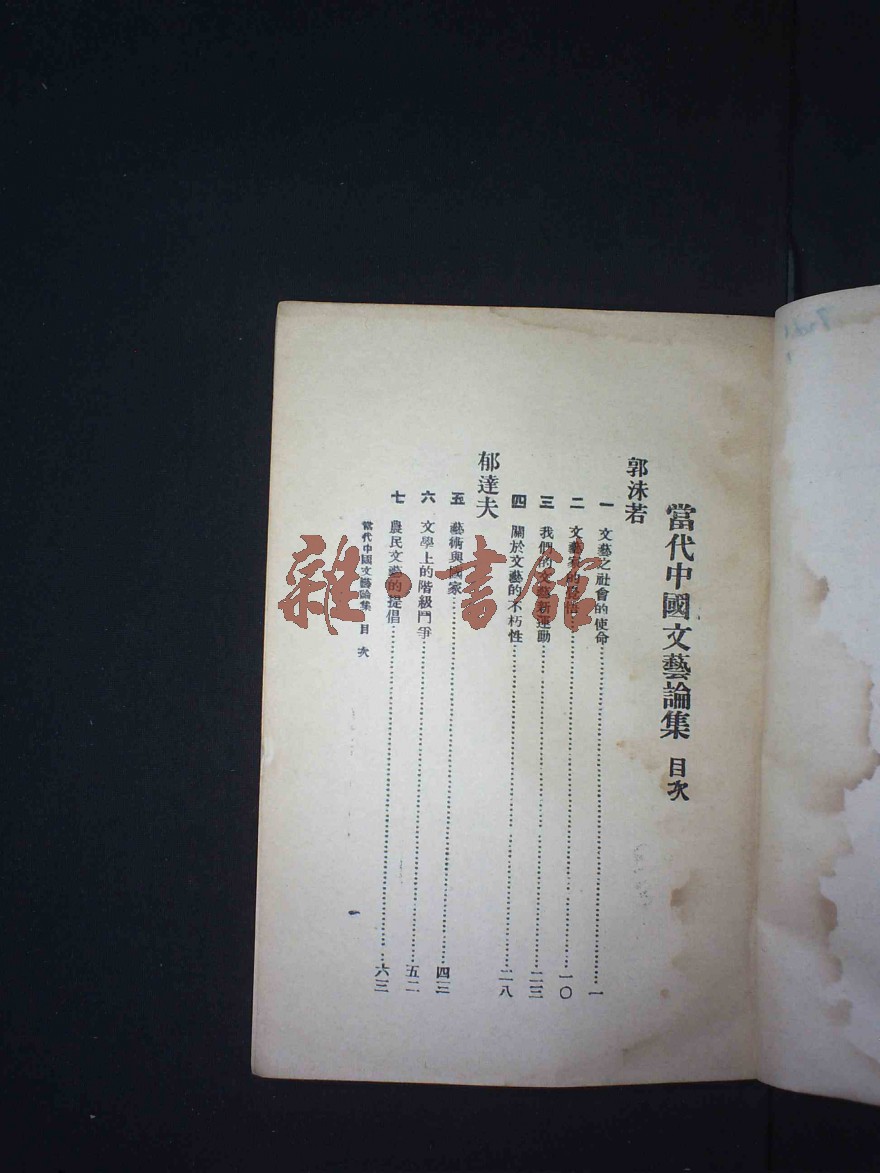 當代中國文藝論集 目次
郭沫若
一 文藝之社會的使命……一
二 文藝家的覺悟……一〇
三 我們的文藝新運動……二三
四 關於文藝的不朽性……二八
郁達夫
五 藝術與國家……四三
六 文學上的階級鬥爭……五二
七 農民文藝的提倡……六三
當代中國文藝論集 目次
一
雜·書館